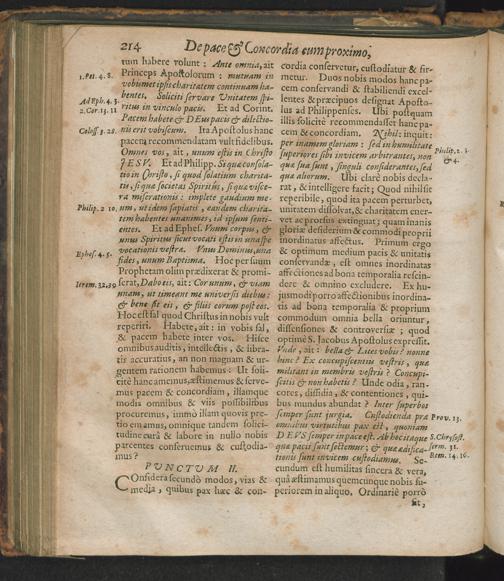 214 De pace & Concordia cum proximo,
tum habere volunt : Ante omnia, ait
Princeps Apostolorum : mutuam in
vobismet ipsis charitatem continuam ha-
bentes. Soliciti servare Unitatem spi-
ritus in vinculo pacis. Et ad Corint.
Pacem habete & DEus pacis & dilectio-
nis erit vobiscum. Ita Apostolus hanc
pacem recommendatam vult fidelibus.
Omnes vos, ait, unum estis in Christo
JESV. Et ad Philipp. Si qua consola-
tio in Christo, si quod solatium charita-
tis, si qua societas Spiritus, si qua visce-
ra miserationis : implete gaudium me-
um, ut idem sapiatis, eandem charita-
tem habentes unanimes, id ipsum senti-
entes. Et ad Ephes. Vnum corpus, &
unus Spiritus sicut vocati estis in una spe
vocationis vestræ. Vnus Dominus, una
fides, unum Baptisma. Hoc per suum
Prophetam olim prædixerat & promi-
serat, Dabo eis, ait : Cor unum, & viam
unam, ut timeant me universis diebus :
& bene sit eis, & filiis eorum post eos.
Hoc est sal quod Christus in nobis vult
reperiri. Habete, ait : in vobis sal,
& pacem habete inter vos. Hisce
omnibus auditis, intellectis, & libra-
tis accuratius, an non magnam & ur-
gentem rationem habemus : Ut soli-
citè hanc amemus, æstimemus & serve-
mus pacem & concordiam, illamque
modis omnibus & viis possibilibus
procuremus, immò illam quovis pre-
tio emamus, omnique tandem solici-
tudine curâ & labore in nullo nobis
parcentes conservemus & custodia-
mus ?
PUNCTUM II.
Considera secundò modos, vias &
media, quibus pax hæc & con-
1. Pet. 4. 8.
Ad Eph. 4. 3.
2. Cor. 13. 11
Coloss. 3. 28.
Philip. 2 10.
Ephes. 4. 5.
Ierem. 32. 39
cordia conservetur, custodiatur & fir-
metur. Duos nobis modos hanc pa-
cem conservandi & stabiliendi excel-
lentes & præcipuos designat Aposto-
lus ad Philippenses. Ubi postquam
illis solicitè recommendasset hanc pa-
cem & concordiam. Nihil : inquit :
per inanem gloriam : sed in humilitate
superiores sibi invicem arbitrantes, non
quæ sua sunt, singuli considerantes, sed
quæ aliorum. Ubi clarè nobis decla-
rat, & intelligere facit ; Quod nihil sit
reperibile, quod ita pacem perturbet,
unitatem dissolvat, & charitatem ener-
vet ac prorsus extinguat ; quam inanis
gloriæ desiderium & commodi proprii
inordinatus affectus. Primum ergo
& optimum medium pacis & unitatis
conservandæ, est omnes inordinatas
affectiones ad bona temporalia rescin-
dere & omnino excludere. Ex hu-
jusmodi porro affectionibus inordina-
tis ad bona temporalia & proprium
commodum omnia bella oriuntur,
dissensiones & controversiæ ; quod
optimè S. Jacobus Apostolus expressit.
Vnde, ait : bella & Lites vobis ? nonne
hinc ? Ex concupiscentiis vestris, quæ
militant in membris vestris ? Concupi-
scitis & non habetis ? Unde odia, ran-
cores, dissidia, & contentiones, qui-
bus mundus abundat ? Inter superbos
semper sunt jurgia. Custodienda præ
omnibus virtutibus pax est, quoniam
DEVS semper in pace est. Ab hoc itaque
quæ pacis sunt sectemur ; & quæ ædifica-
tionis sunt invicem custodiamus. Se-
cundum est humilitas sincera & vera,
quâ æstimamus quemcunque nobis su-
periorem in aliquo. Ordinariè porrò
sit,
Philip. 2. 3.
& 4.
Prov. 13.
S. Chrysost.
serm. 31.
Rom. 14. 16.